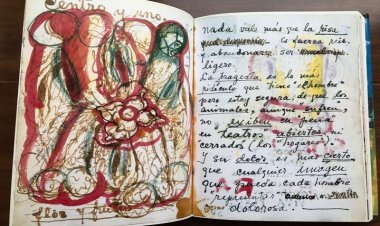 Centro y uno.
flor y fruto
nada vale más que la risa
es fuerza reir
y abandonarse. ser
ligero.
La tragedia es lo más
ridículo que tiene "el hombre"
pero estoy segura, de que los
animales, aunque sufren,
no exiben su "pena"
en "teatros" abiertos, ni
"cerrados" (los "hogares").
Y su dolor es más cierto
que cualquier imagen
que pueda cada hombre
"representar"
como dolorosa.